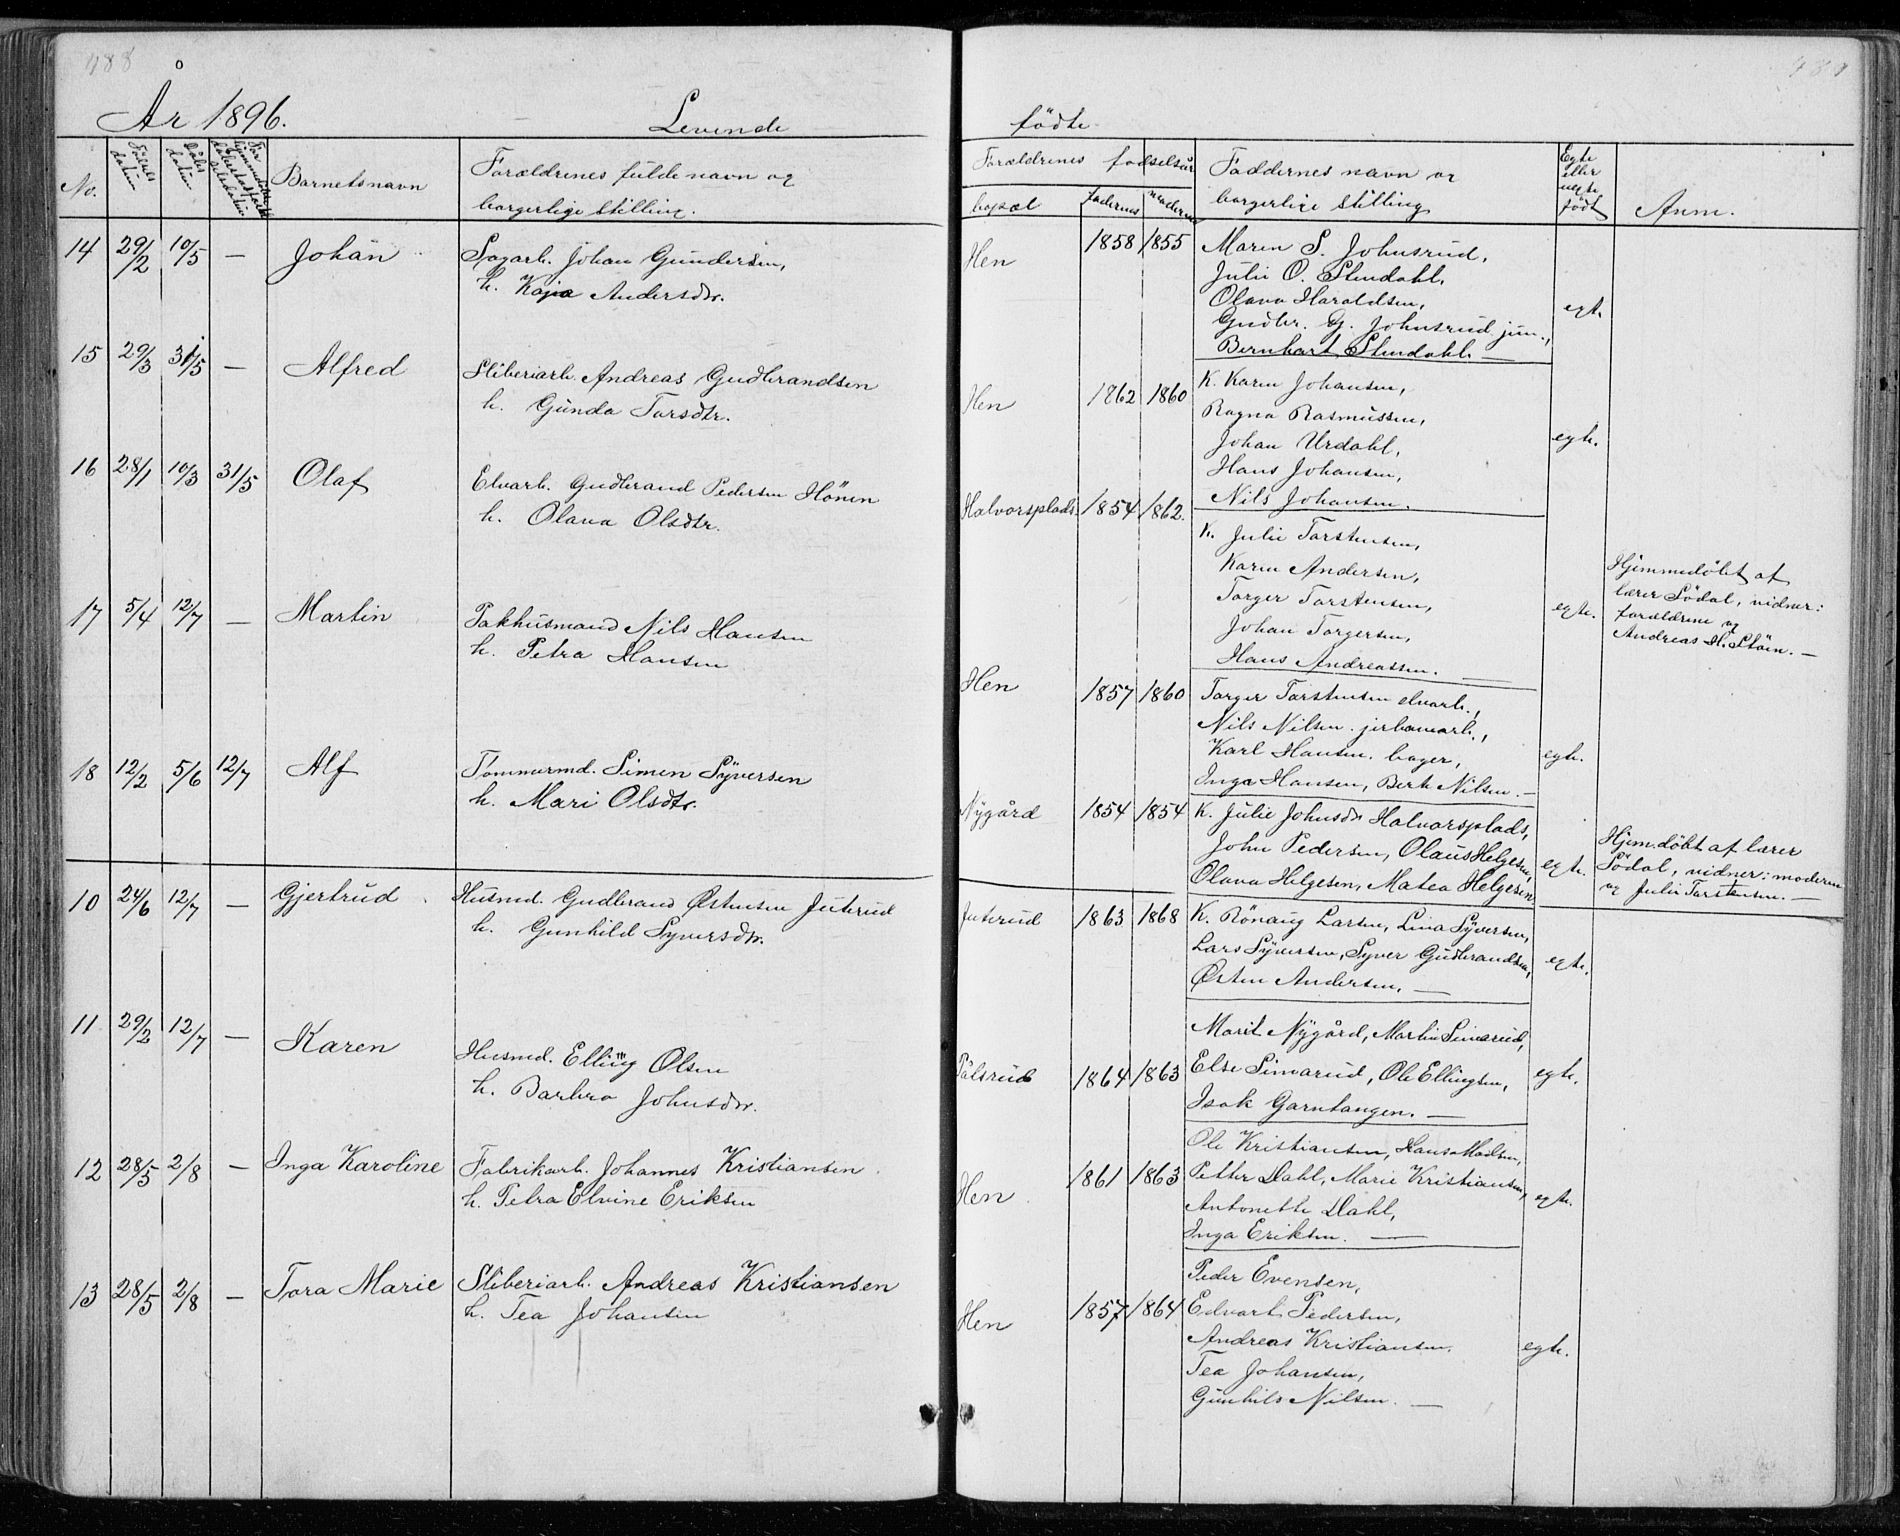 488
År 1896.
Levende
No.
Fødsels
datum
Dåbs
datum
Barnetsnavn
Forældrenes fulde navn og
borgerlige stilling.
14 29/2 10/5 — Johan Sagarb. Johan Gundersen,
h. Kaja Andersdtr.
15 29/3 31/5 — Alfred Sliberiarb. Andreas Gudbrandsen
h. Gunda Torsdtr.
16 28/1 10/3 31/5 Olaf Elvarb. Gudbrand Pedersen Hönen
h. Olava Olsdtr.
17 5/4 12/7 — Martin Pakhusmand Nils Hansen
h. Petra Hansen
18 12/2 5/6 12/7 Alf Tömmermd. Simen Syversen
h. Mari Olsdtr.
10 24/6 12/7 — Gjertrud Husmd. Gudbrand Østensen Juterud
h. Gunhild Syversdtr.
11 29/2 12/7 — Karen Husmd. Elling Olsen
h. Barbro Johnsdtr.
12 28/5 2/8 — Inga Karoline Fabrikarb. Johannes Kristiansen
h. Petra Elvine Eriksen
13 28/5 2/8 — Tora Marie Sliberiarb. Andreas Kristiansen
h. Tea Johansen
födte
Forældrenes fodselsår
bopæl faderens moderens
Faddernes navn og
borgerlige stilling
Egte
eller
uegte
födt
Anm.
Hen 1858 1855 Maren S. Johnsrud,
Julie O. Stendahl,
Olava Haraldsen,
Gudbr. G. Johnsrud jun.,
Bernhart Stendahl. —
egt.
Hen 1862 1860 K. Karen Johansen,
Ragna Rasmussen,
Johan Urdahl,
Hans Johansen,
Nils Johansen.
egte.
Halvorsplads. 1854 1862. K. Julie Torstensen,
Karen Andersen,
Torger Torstensen,
Johan Torgersen,
Hans Andreassen. —
egte.
Hjemmedöbt af
lærer Södal, vidner:
forældrene og
Andreas H. Støen. —
Hen 1857 1860 Torger Torstensen elvarb.,
Nils Nilsen jerbanearb.,
Karl Hansen, bager,
Inga Hansen, Berte Nilsen. —
egte.
Nygård 1854 1854 K. Julie Johnsdtr Halvorsplads,
John Pedersen, Olaus Helgesen,
Olava Helgesen, Matea Helgesen.
egte.
Hjem.döbt af lærer
Södal, vidner: moderen
og Julie Torstensen. —
Juterud 1863 1868 K. Rönaug Larsen, Lina Syversen,
Lars Syversen, Syver Gudbrandsen,
Østen Andersen. —
egte.
Marit Nygård, Martin Simarud,
Pålsrud 1864 1863 Else Simarud, Ole Ellingsen,
Isak Garntangen. —
egte.
Ole Kristiansen, Hans Madsen,
Hen 1861 1863 Petter Dahl, Marie Kristiansen,
Antonette Dahl,
Inga Eriksen. —
egte.
Peder Evensen,
Hen 1857 1864 Edvart Pedersen,
Andreas Kristiansen,
Tea Johansen,
Gunhild Nilsen. —
egte.